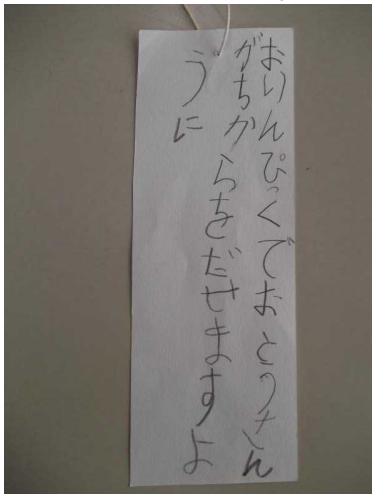 おりんぴっくでおとうさん
がちからをだせますよ
うに